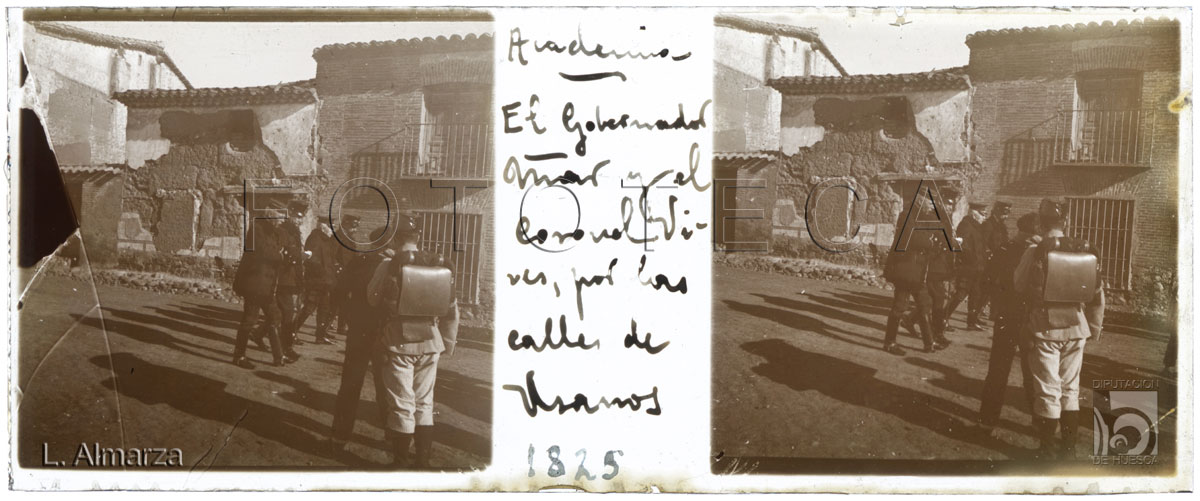 Academia
El Gobernador
y el
coronel Vi-
ves, por las
calles de
Usanos
1825
FOTOTECA
L. Almarza
DIPUTACIÓN
DE HUESCA